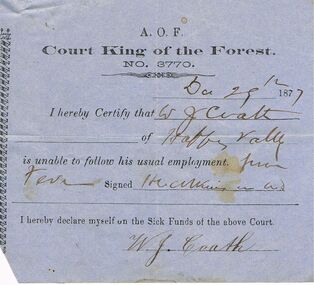 A. O. F.
Court King of the Forest.
NO. 3770.
Dec 29th 1877
I hereby Certify that W J Coath
of Happy Vally
is unable to follow his usual employment. from
Fever Signed
I hereby declare myself on the Sick Funds of the above Court.
W. J. Coath